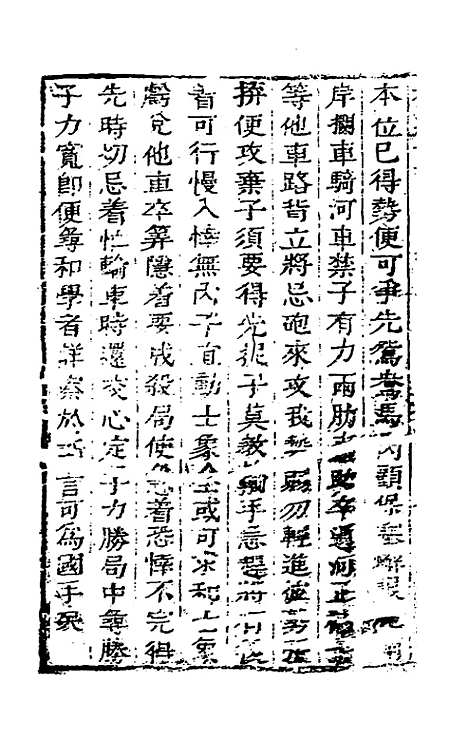 本位已得勢便可爭先鴛鴦馬內顧保塞
岸攔車騎河車禁子有力兩肋車助卒過河正
等他車路背立將忌砲來攻我勢弱勿輕進彼勢
拚便攻棄子須要得先捉子莫教手急
着可行慢入悻無內子宜動士象全或可求和士象
虧兌他車卒算隱着要成殺局使急着恐悻不完
先時切忌着忙輸車時還放心定子力勝局中尋勝
子力寬即便尋和學者詳察於斯言可為國手矣